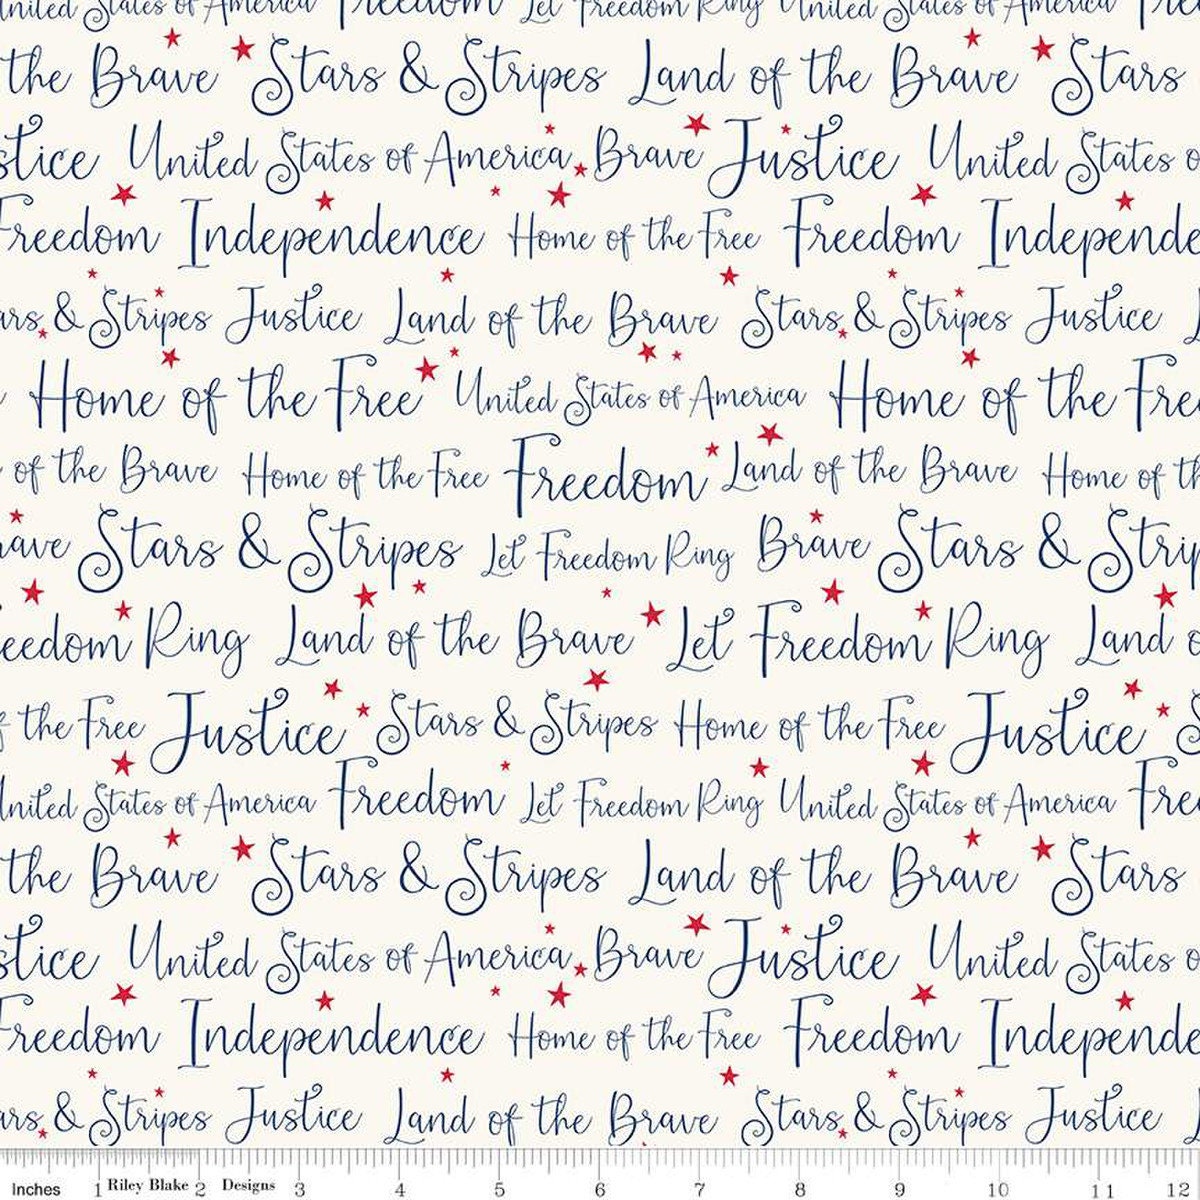 United States of America Freedom Let Freedom Ring United States of America
the Brave Stars & Stripes Land of the Brave Stars
Justice United States of America Brave Justice United States
Freedom Independence Home of the Free Freedom Independence
Stars & Stripes Justice Land of the Brave Stars & Stripes Justice
Home of the Free United States of America Home of the Free
of the Brave Home of the Free Freedom Land of the Brave Home of th
Brave Stars & Stripes Let Freedom Ring Brave Stars & Strip
eedom Ring Land of the Brave Let Freedom Ring Land o
f the Free Justice Stars & Stripes Home of the Free Justice S
United States of America Freedom Let Freedom Ring United States of America Free
the Brave Stars & Stripes Land of the Brave Stars
stice United States of America Brave Justice United States o
Freedom Independence Home of the Free Freedom Independe
ars & Stripes Justice Land of the Brave Stars & Stripes Justice
Inches 1 Riley Blake 2 Designs 3 4 5 6 7 8 9 10 11 12